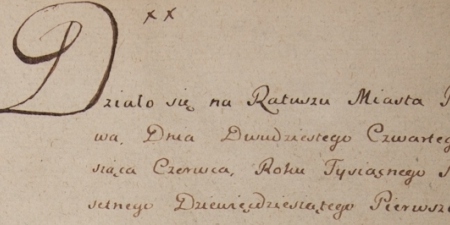 ××
Działo się na Ratuszu Miasta
wa, Dnia Dwudziestego Czwarteg
siąca Czerwca, Roku Tysiącnego
setnego Dziewięćdziesiątego Pierwsz